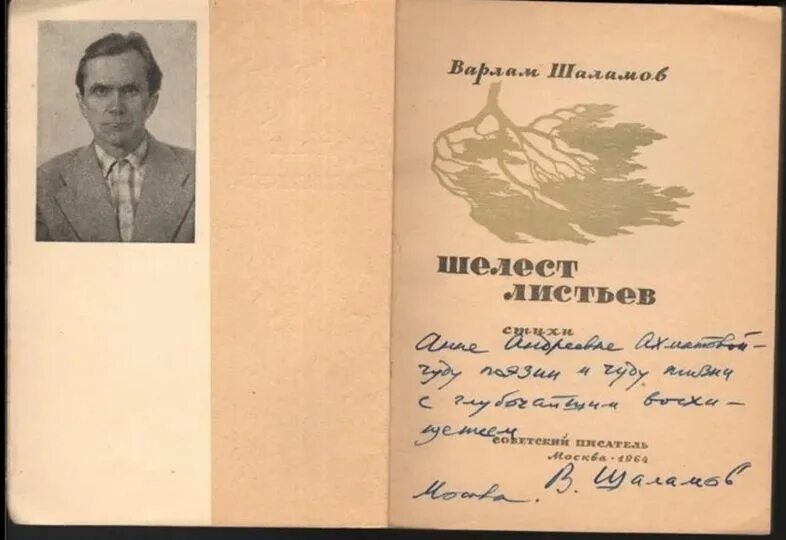 Варлам Шаламов
шелест
листьев
стихи
Анне Андреевне Ахматовой —
чуду поэзии и чуду жизни
с глубочайшим восхи-
щением
советский писатель
Москва · 1964
Москва. В. Шаламов